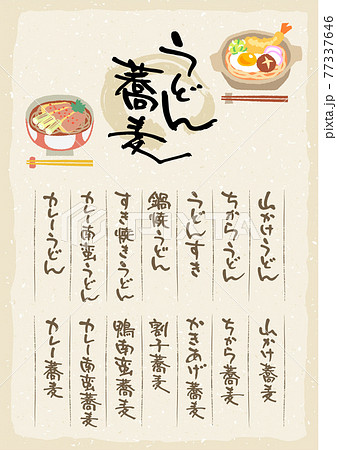 うどん
蕎麦
山かけうどん
ちからうどん
うどんすき
鍋焼うどん
すき焼きうどん
カレー南蛮うどん
カレーうどん
山かけ蕎麦
ちから蕎麦
かきあげ蕎麦
割子蕎麦
鴨南蛮蕎麦
カレー南蛮蕎麦
カレー蕎麦
PIXTA
pixta.jp - 77337646